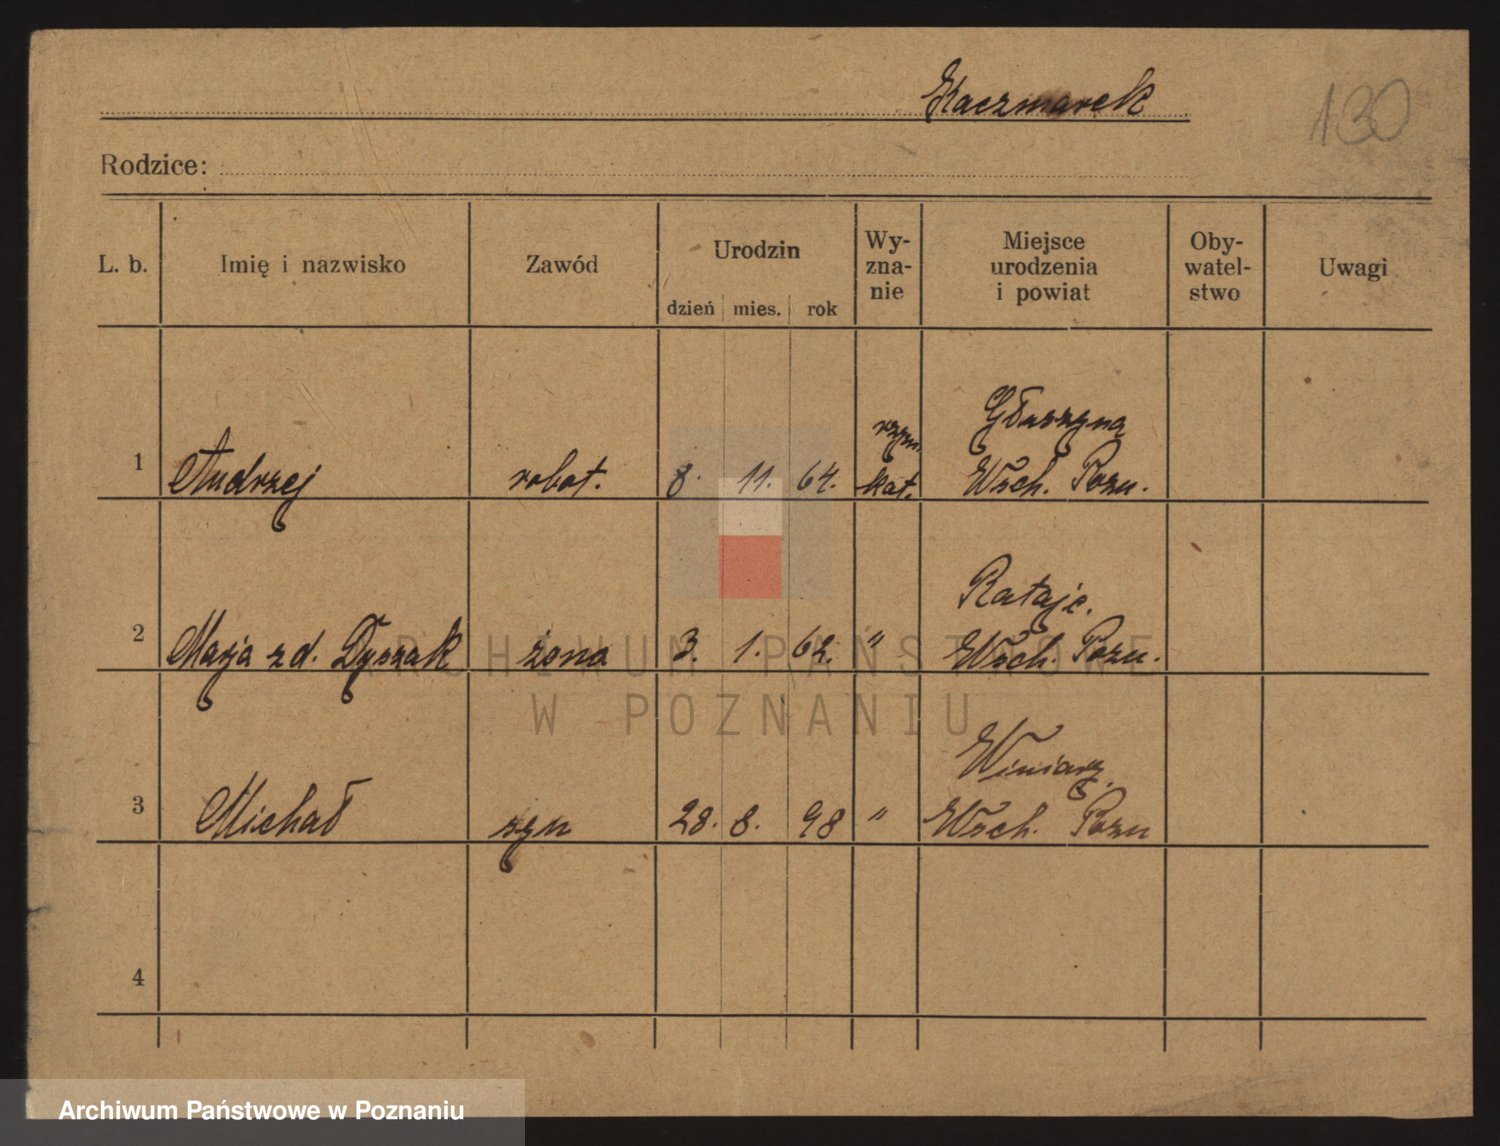 Kaczmarek
130
Rodzice:
L. b. Imię i nazwisko Zawód Urodzin dzień mies. rok Wy-zna-nie Miejsce urodzenia i powiat Oby-watel-stwo Uwagi
1 Andrzej robot. 8. 11. 64. rzym. kat. Głuszyna Wsch. Pozn.
2 Marja z d. Dyszak żona 3. 1. 62. " Rataje. Wsch. Pozn.
3 Michał syn 28. 8. 98 " Winiary. Wsch. Pozn
4
ARCHIWUM PAŃSTWOWE
W POZNANIU
Archiwum Państwowe w Poznaniu